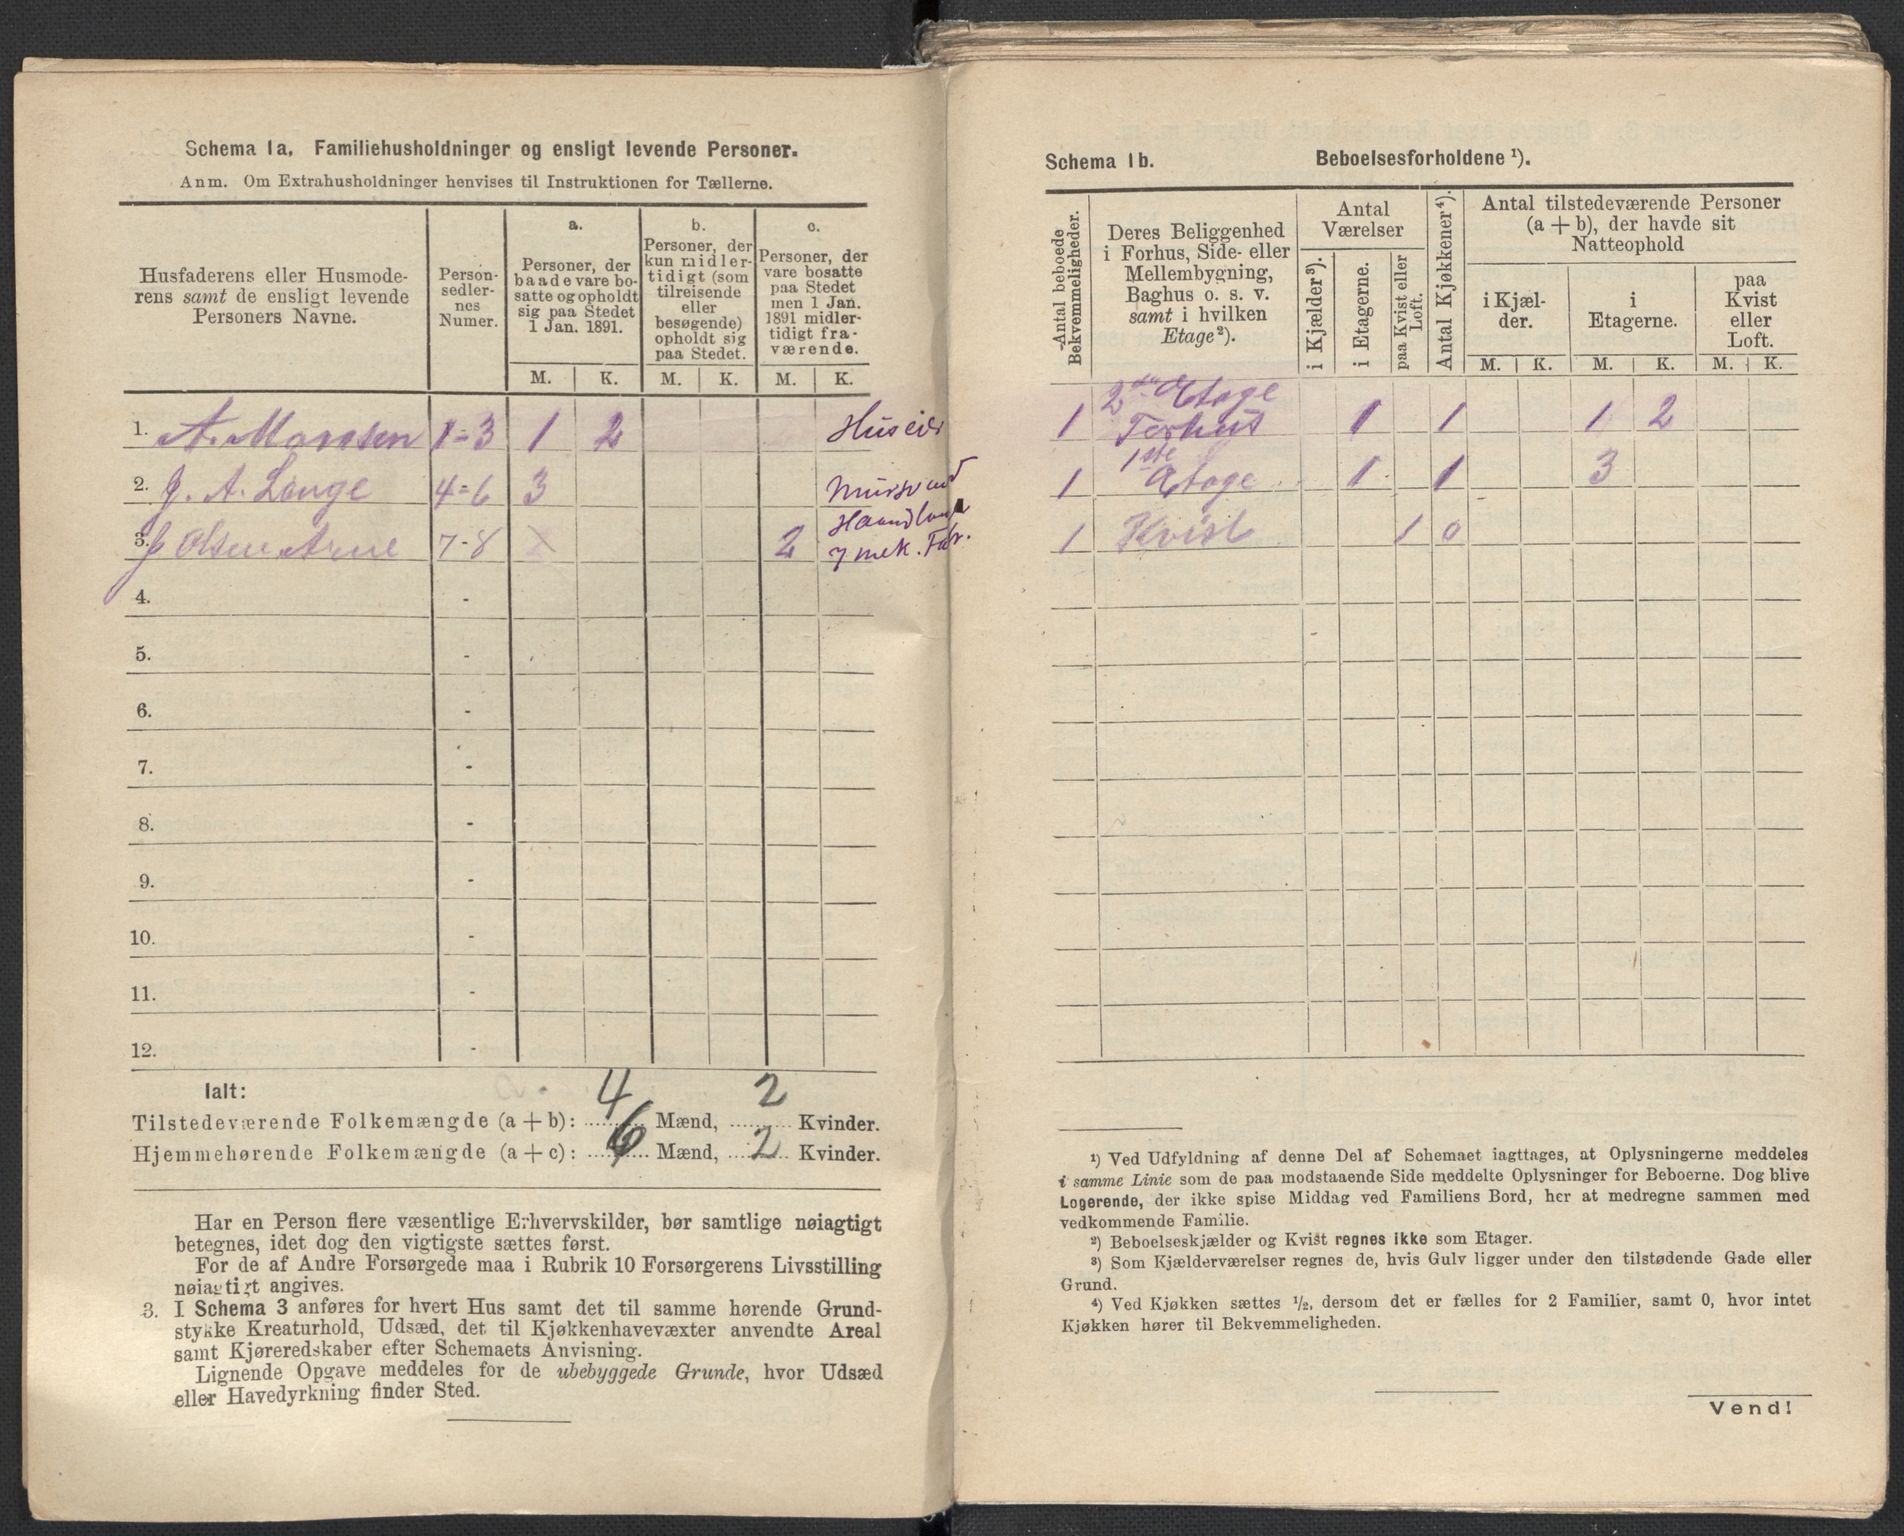 Schema 1a. Familiehusholdninger og ensligt levende Personer.
Anm. Om Extrahusholdninger henvises til Instruktionen for Tællerne.
Husfaderens eller Husmoderens samt de ensligt levende Personers Navne.
Personsedlernes Numer.
a.
Personer, der baade vare bosatte og opholdt sig paa Stedet 1 Jan. 1891.
b.
Personer, der kun midlertidigt (som tilreisende eller besøgende) opholdt sig paa Stedet.
c.
Personer, der vare bosatte paa Stedet men 1 Jan. 1891 midlertidigt fraværende.
M. K. M. K. M. K.
1. A. Monssen 1=3 1 2 Huseier
2. J. A. Lange 4=6 3
3. J Olsen Arne 7-8 2
4. -
5. -
6. -
7. -
8. -
9. -
10. -
11. -
12. -
Ialt:
Tilstedeværende Folkemængde (a + b): 4 Mænd, 2 Kvinder.
Hjemmehørende Folkemængde (a + c): 6 Mænd, 2 Kvinder.
Har en Person flere væsentlige Erhvervskilder, bør samtlige nøiagtigt
betegnes, idet dog den vigtigste sættes først.
For de af Andre Forsørgede maa i Rubrik 10 Forsørgerens Livsstilling
nøiagtigt angives.
3. I Schema 3 anføres for hvert Hus samt det til samme hørende Grund-
stykke Kreaturhold, Udsæd, det til Kjøkkenhavevæxter anvendte Areal
samt Kjøreredskaber efter Schemaets Anvisning.
Lignende Opgave meddeles for de ubebyggede Grunde, hvor Udsæd
eller Havedyrkning finder Sted.
Schema 1b. Beboelsesforholdene ¹).
Antal beboede Bekvemmeligheder.
Deres Beliggenhed i Forhus, Side- eller Mellembygning, Baghus o. s. v. samt i hvilken Etage²).
Antal Værelser
i Kjælder³).
i Etagerne.
paa Kvist eller Loft.
Antal Kjøkkener⁴).
Antal tilstedeværende Personer
(a + b), der havde sit
Natteophold
i Kjælder.
i Etagerne.
paa Kvist eller Loft.
M. K. M. K. M. K.
1 2den Etage Forhus 1 1 1 2
1 1ste Etage 1 1 3
1 Kvist 1 0
¹) Ved Udfyldning af denne Del af Schemaet iagttages, at Oplysningerne meddeles
i samme Linie som de paa modstaaende Side meddelte Oplysninger for Beboerne. Dog blive
Logerende, der ikke spise Middag ved Familiens Bord, her at medregne sammen med
vedkommende Familie.
²) Beboelseskjælder og Kvist regnes ikke som Etager.
³) Som Kjælderværelser regnes de, hvis Gulv ligger under den tilstødende Gade eller
Grund.
⁴) Ved Kjøkken sættes ½, dersom det er fælles for 2 Familier, samt 0, hvor intet
Kjøkken hører til Bekvemmeligheden.
Vend!